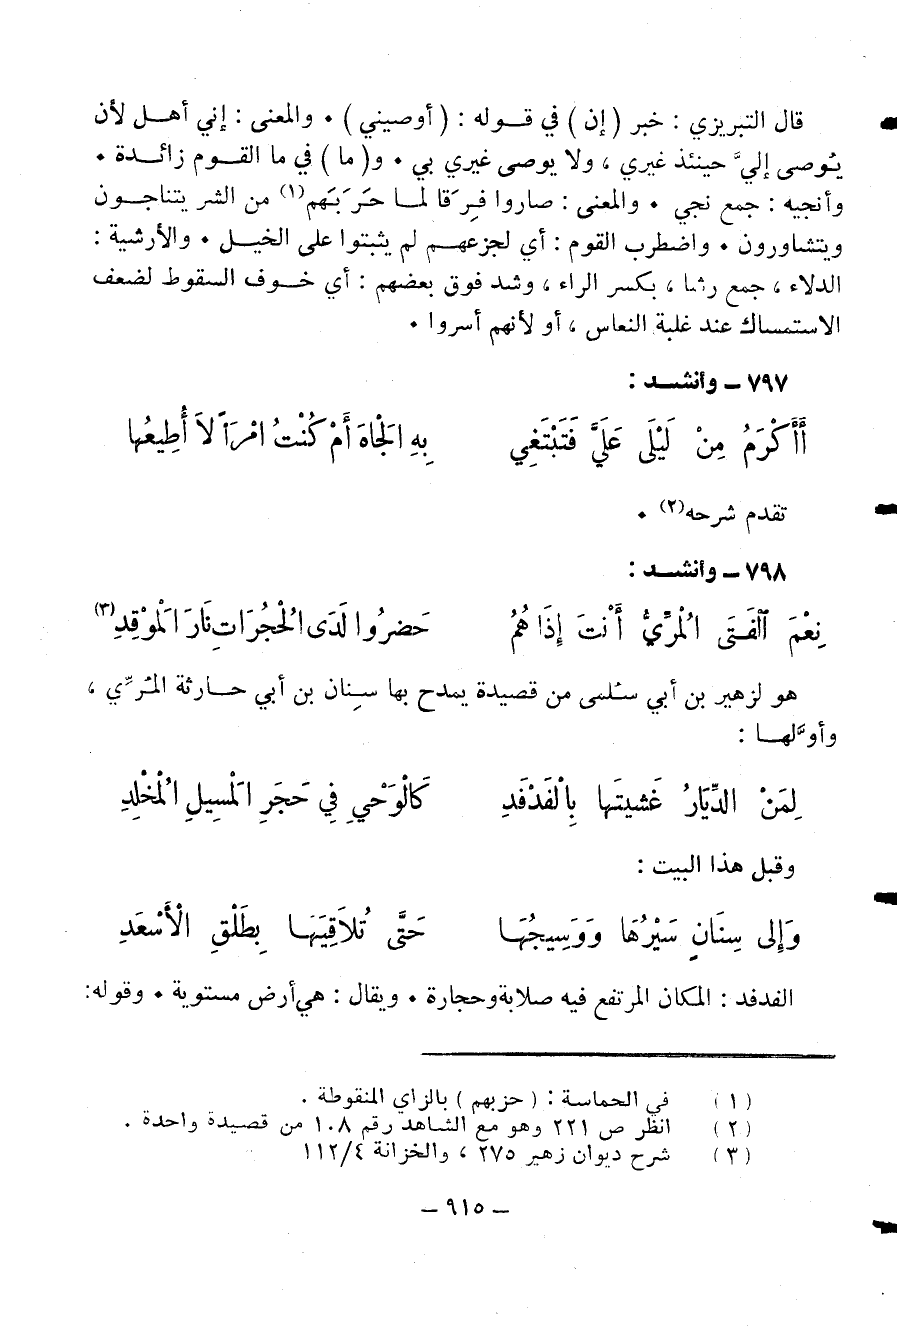 قال التبريزي : خبر ( إن ) في قوله : ( أوصيني ) • والمعنى : إني أهل لأن
يُوصى إليَّ حينئذ غيري ، ولا يوصى غيري بي • و( ما ) في ما القوم زائدة •
وأنجيه : جمع نجي • والمعنى : صاروا فِرَقا لما حَرَبَهم(١) من الشر يتناجون
ويتشاورون • واضطرب القوم : أي لجزعهم لم يثبتوا على الخيل • والأرشية :
الدلاء ، جمع رشا ، بكسر الراء ، وشد فوق بعضهم : أي خوف السقوط لضعف
الاستمساك عند غلبة النعاس ، أو لأنهم أسروا •
٧٩٧ – وأنشد :
أَأَكْرَمُ مِنْ لَيْلَى عَلَيَّ فَتَبْتَغِي بِهِ الجَاهَ أَمْ كُنْتُ امْرَأً لاَ أُطِيعُها
تقدم شرحه(٢) •
٧٩٨ – وأنشد :
نِعْمَ الْفَتَى الْمُرِّيُّ أَنْتَ إِذَا هُمُ حَضَرُوا لَدَى الْحُجُرَاتِ نَارَ الْمَوْقِدِ(٣)
هو لزهير بن أبي سُلمى من قصيدة يمدح بها سنان بن أبي حارثة المُرِّي ،
وأوَّلها :
لِمَنْ الدِّيَارُ غَشيتَها بِالْفَدْفَدِ كَالْوَحْيِ فِي حَجَرِ الْمَسِيلِ الْمُخْلِدِ
وقبل هذا البيت :
وَإِلى سِنَانٍ سَيْرُهَا وَوَسِيجُهَا حَتَّى تُلاَقِيَهَا بِطَلْقِ الْأَسْعَدِ
الفدفد : المكان المرتفع فيه صلابة وحجارة • ويقال : هي أرض مستوية • وقوله :
(١) في الحماسة : ( حزبهم ) بالزاي المنقوطة .
(٢) انظر ص ٢٢١ وهو مع الشاهد رقم ١٠٨ من قصيدة واحدة .
(٣) شرح ديوان زهير ٢٧٥ ، والخزانة ١١٢/٤
– ٩١٥ –